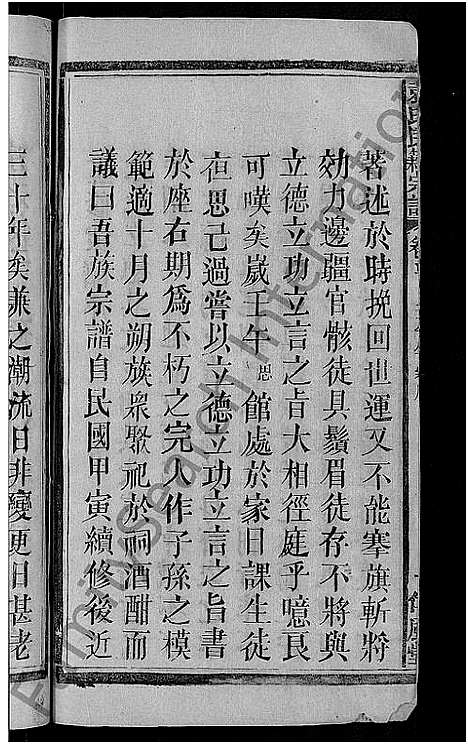 著述於時挽回世運又不能搴旗斬將
効力邊疆官骸徒具鬚眉徒存不將與
立德立功立言之旨大相徑庭乎噫良
可嘆矣嵗壬午思館處於家日課生徒
夜思己過嘗以立德立功立言之旨書
於座右期爲不朽之完人作子孫之模
範適十月之朔族衆聚祀於祠酒酣而
議曰吾族宗譜自民國甲寅續修後近
三十年矣兼之潮流日非變更日甚老
FamilySearch International